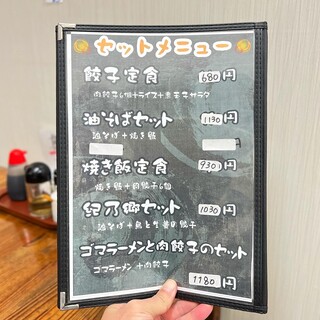 セットメニュー
餃子定食 680円
肉餃子6個+ライス+
油そばセット 1130円
油そば+焼き飯
焼き飯定食 930円
焼き飯+肉餃子6個
紀乃郷セット 1030円
油そば+
ゴマラーメンと肉餃子のセット
ゴマラーメン+肉餃子
1180円